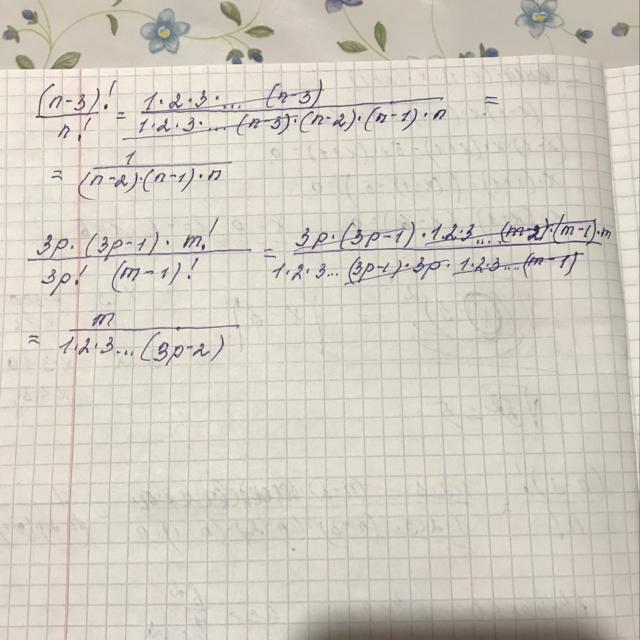 (n-3)! / n! = 1·2·3·... (n-3) / 1·2·3·...(n-3)·(n-2)·(n-1)·n =
= 1 / (n-2)·(n-1)·n
3p·(3p-1)·m! / 3p! (m-1)! = 3p·(3p-1)·1·2·3...(m-2)·(m-1)·m / 1·2·3...(3p-1)·3p·1·2·3...(m-1)
= m / 1·2·3...(3p-2)